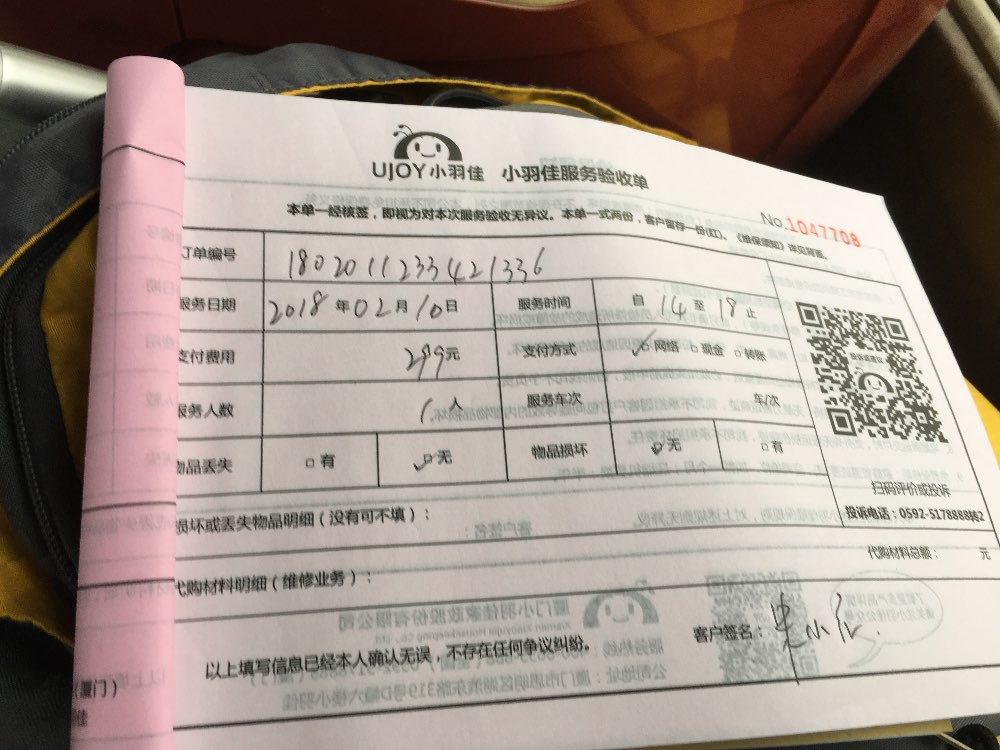 UJOY小羽佳 小羽佳服务验收单
本单一经核签，即视为对本次服务验收无异议。本单一式两份，客户留存一份(红)。《维保须知》详见背面。
No.1047708
订单编号 1802011233421336
服务日期 2018年02月10日 服务时间 自14至18止
支付费用 299元 支付方式 ☑网络 □现金 □转账
服务人数 1人 服务车次 车/次
物品丢失 □有 ☑无 物品损坏 ☑无 □有
扫码评价或投诉
投诉电话：0592-5178888转2
损坏或丢失物品明细（没有可不填）：
代购材料总额： 元
代购材料明细（维修业务）：
客户签名：
以上填写信息已经本人确认无误，不存在任何争议纠纷。
（厦门）
佳